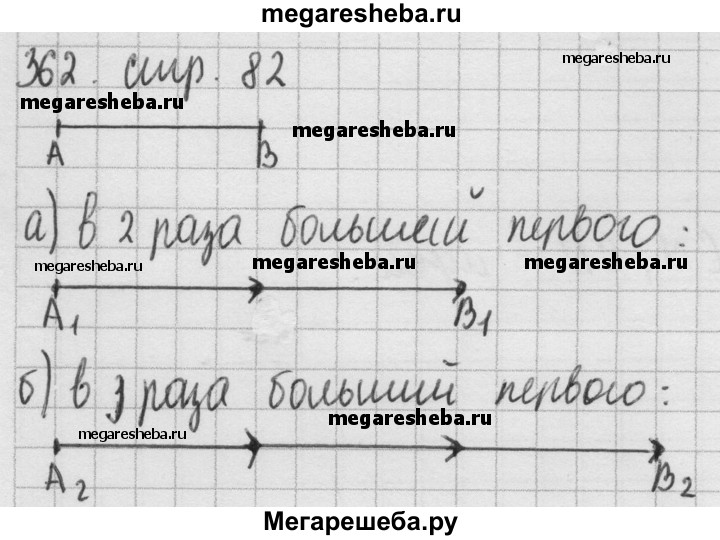 megaresheba.ru
362. стр. 82
megaresheba.ru
megaresheba.ru
megaresheba.ru
A B
а) в 2 раза большей первого:
megaresheba.ru megaresheba.ru megaresheba.ru
A1 B1
б) в 3 раза больший первого:
megaresheba.ru
megaresheba.ru
A2 B2
Мегарешеба.ру